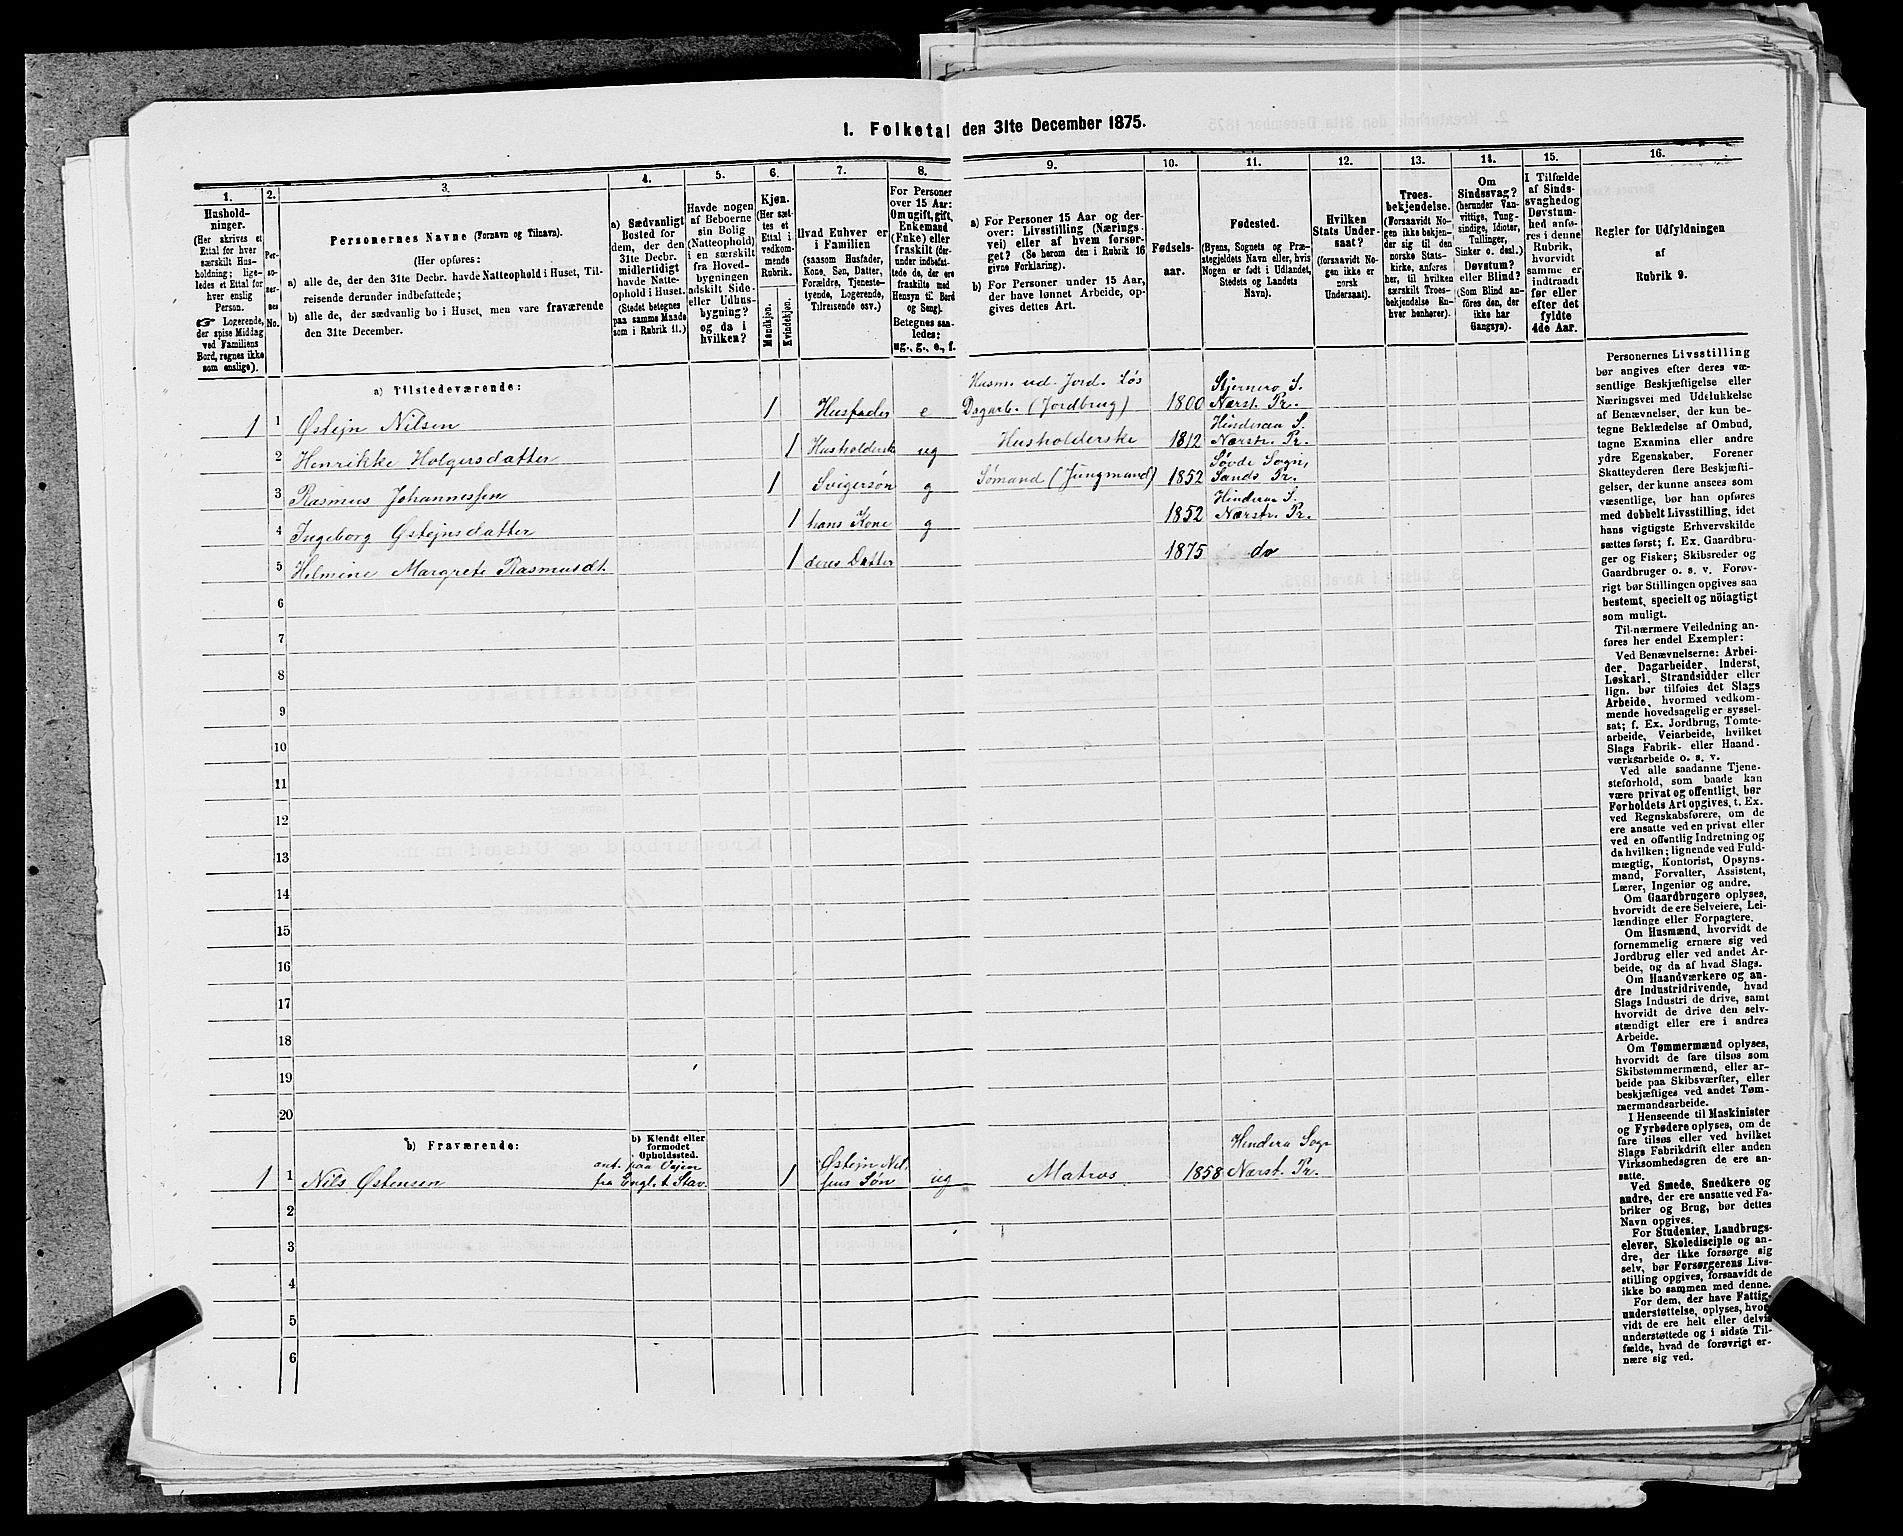 1. Folketal den 31te December 1875.
1.
Hushold-
ninger.
(Her skrives et
Ettal for hver
særskilt Hus-
holdning; lige-
ledes et Ettal for
hver enslig
Person.
☞ Logerende,
der spise Middag
ved Familiens
Bord, regnes ikke
som enslige).
2.
Per-
so-
ner-
nes
No.
3.
Personernes Navne (Fornavn og Tilnavn).
(Her opføres:
a) alle de, der den 31te Decbr. havde Natteophold i Huset, Til-
reisende derunder indbefattede;
b) alle de, der sædvanlig bo i Huset, men vare fraværende
den 31te December.
4.
a) Sædvanligt
Bosted for
dem, der den
31te Decbr.
midlertidigt
havde Natte-
ophold i Huset.
(Stedet betegnes
paa samme Maade
som i Rubrik 11.)
5.
Havde nogen
af Beboerne
sin Bolig
(Natteophold)
i en særskilt
fra Hoved-
bygningen
adskilt Side-
eller Udhus-
bygning?
og da i
hvilken?
6.
Kjøn.
(Her sæt-
tes et
Ettal i
vedkom-
mende
Rubrik.
Mandkjøn.
Kvindekjøn.
7.
Hvad Enhver er
i Familien
(saasom Husfader,
Kone, Søn, Datter,
Forældre, Tjeneste-
tyende, Logerende,
Tilreisende osv.)
8.
For Personer
over 15 Aar:
Om ugift, gift,
Enkemand
(Enke) eller
fraskilt (der-
under indbefat-
tede de, der ere
fraskilte med
Hensyn til Bord
og Seng).
Betegnes saa-
ledes:
ug., g., e., f.
9.
a) For Personer 15 Aar og der-
over: Livsstilling (Nærings-
vei) eller af hvem forsør-
get? (Se herom den i Rubrik 16
givne Forklaring).
b) For Personer under 15 Aar,
der have lønnet Arbeide, op-
gives dettes Art.
10.
Fødsels-
aar.
11.
Fødested.
(Byens, Sognets og Præ-
stegjeldets Navn eller, hvis
Nogen er født i Udlandet,
Stedets og Landets
Navn).
12.
Hvilken
Stats Under-
saat?
(forsaavidt No-
gen ikke er
norsk
Undersaat).
13.
Troes-
bekjendelse.
(Forsaavidt No-
gen ikke bekjen-
der sig til den
norske Stats-
kirke, anføres
her, til hvilken
særskilt Troes-
bekjendelse En-
hver henhører).
14.
Om
Sindssvag?
(herunder Van-
vittige, Tung-
sindige, Idioter,
Tullinger,
Sinker o. desl.)
Døvstum?
eller Blind?
(Som Blind an-
føres den, der
ikke har
Gangsyn).
15.
I Tilfælde
af Sinds-
svaghed og
Døvstum-
hed anfø-
res i denne
Rubrik,
hvorvidt
samme er
indtraadt
før eller
efter det
fyldte
4de Aar.
16.
Regler for Udfyldningen
af
Rubrik 9.
a) Tilstedeværende:
1 1 Østejn Nilsen 1 Husfader e Husm. ud. Jord. Løs Dagarb. (Jordbrug) 1800 Stjernerø S. Nærst. Pr.
2 Henrikke Holgersdatter 1 Husholderske ug Husholderske 1812 Hinderaa S. Nærstr. Pr.
3 Rasmus Johannessen 1 Svigersøn g Sømand (Jungmand) 1852 Søvde Sogn, Sands Pr.
4 Ingeborg Østejnsdatter 1 hans Kone g 1852 Hinderaa S. Nærstr. Pr.
5 Helmine Margrete Rasmusdt. 1 deres Datter 1875 do
6
7
8
9
10
11
12
13
14
15
16
17
18
19
20
b) Fraværende:
b) Kjendt eller
formodet
Opholdssted.
1 1 Nils Østensen ant. paa Vejen fra Engl. t. Stav. 1 Østejn Nilsens Søn ug Matros 1858 Hindera Sogn Nærst. Pr.
2
3
4
5
6
Personernes Livsstilling
bør angives efter deres væ-
sentlige Beskjæftigelse eller
Næringsvei med Udelukkelse
af Benævnelser, der kun be-
tegne Beklædelse af Ombud,
tagne Examina eller andre
ydre Egenskaber. Forener
Skatteyderen flere Beskjæfti-
gelser, der kunne ansees som
væsentlige, bør han opføres
med dobbelt Livsstilling, idet
hans vigtigste Erhvervskilde
sættes først; f. Ex. Gaardbru-
ger og Fisker; Skibsreder og
Gaardbruger o. s. v. Forøv-
rigt bør Stillingen opgives saa
bestemt, specielt og nöiagtigt
som muligt.
Til nærmere Veiledning an-
føres her endel Exempler:
Ved Benævnelserne: Arbei-
der, Dagarbeider, Inderst,
Løskarl, Strandsidder eller
lign. bør tilføies det Slags
Arbeide, hvormed vedkom-
mende hovedsagelig er syssel-
sat; f. Ex. Jordbrug, Tomte-
arbeide, Veiarbeide, hvilket
Slags Fabrik- eller Haand-
værksarbeide o. s. v.
Ved alle saadanne Tjene-
steforhold, som baade kan
være privat og offentligt, bør
Forholdets Art opgives, t. Ex.
ved Regnskabsførere, om de
ere ansatte ved en privat eller
ved en offentlig Indretning og
da hvilken; lignende ved Fuld-
mægtig, Kontorist, Opsyns-
mand, Forvalter, Assistent,
Lærer, Ingeniør og andre.
Om Gaardbrugere oplyses,
hvorvidt de ere Selveiere, Lei-
lændinge eller Forpagtere.
Om Husmænd, hvorvidt de
fornemmelig ernære sig ved
Jordbrug eller ved andet Ar-
beide, og da af hvad Slags.
Om Haandværkere og an-
dre Industridrivende, hvad
Slags Industri de drive, samt
hvorvidt de drive den selv-
stændigt eller ere i andres
Arbeide.
Om Tømmermænd oplyses,
hvorvidt de fare tilsøs som
Skibstømmermænd, eller ar-
beide paa Skibsværfter, eller
beskjæftiges ved andet Tøm-
mermandsarbeide.
I Henseende til Maskinister
og Fyrbødere oplyses, om de
fare tilsøs eller ved hvilket
Slags Fabrikdrift eller anden
Virksomhedsgren de ere an-
satte.
Ved Smede, Snedkere og
andre, der ere ansatte ved Fa-
briker og Brug, bør dettes
Navn opgives.
For Studenter, Landbrugs-
elever, Skoledisciple og an-
dre, der ikke forsørge sig
selv, bør Forsørgerens Livs-
stilling opgives, forsaavidt de
ikke bo sammen med denne.
For dem, der have Fattig-
understøttelse, oplyses, hvor-
vidt de ere helt eller delvis
understøttede og i sidste Til-
fælde, hvad de forøvrigt er-
nære sig ved.